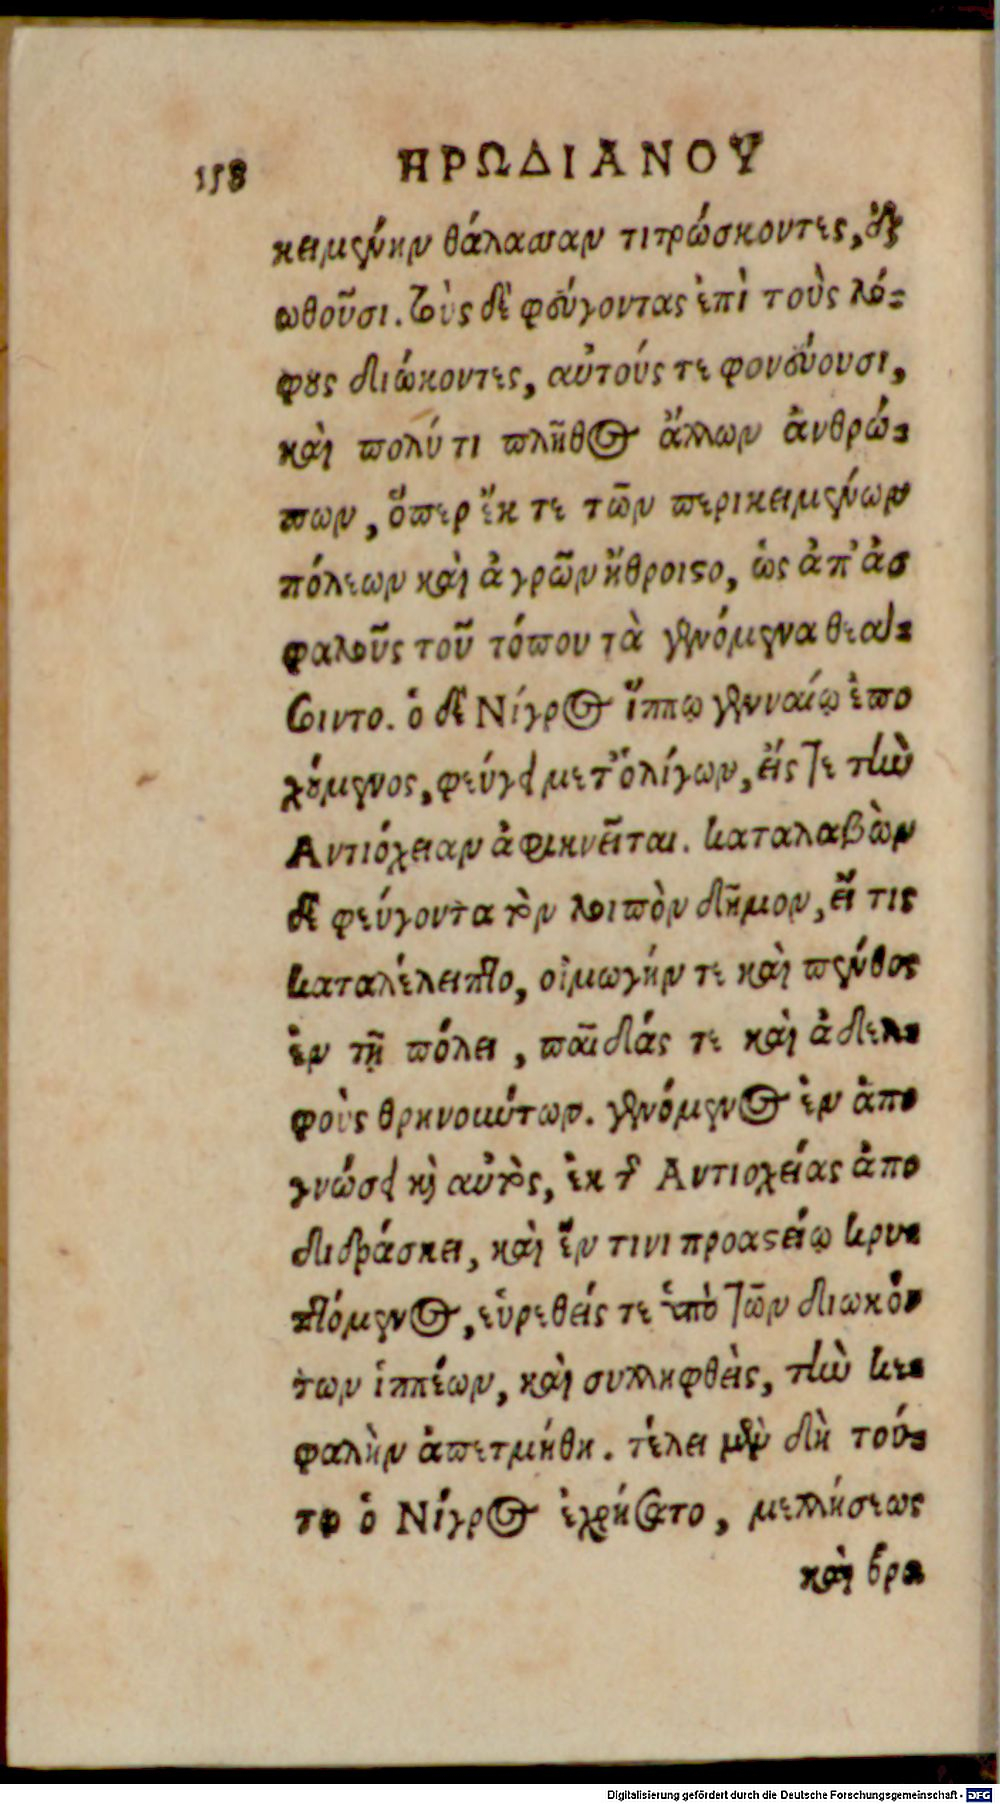 158 ΗΡΩΔΙΑΝΟΥ
κειμένην θάλασσαν τιτρώσκοντες, ἐξ
ωθοῦσι. τοὺς δὲ φεύγοντας ἐπὶ τοὺς λό-
φους διώκοντες, αὐτούς τε φονεύουσι,
καὶ πολύ τι πλῆθος ἄλλων ἀνθρώ-
πων, ὅπερ ἔκ τε τῶν περικειμένων
πόλεων καὶ ἀγρῶν ἤθροιστο, ὡς ἀπ' ἀσ
φαλοῦς τοῦ τόπου τὰ γενόμενα θεά-
σοιντο. ὁ δὲ Νίγρος ἵππῳ γενναίῳ ἐπο
χούμενος, φεύγει μετ' ὀλίγων, εἴς τε τὴν
Αντιόχειαν ἀφικνεῖται. καταλαβὼν
δὲ φεύγοντα τὸν λοιπὸν δῆμον, εἴ τις
καταλέλειπτο, οἰμωγήν τε καὶ πένθος
ἐν τῇ πόλει, παῖδάς τε καὶ ἀδελ-
φοὺς θρηνούντων. γενόμενος ἐν ἀπο
γνώσει καὶ αὐτὸς, ἐκ τῆς Αντιοχείας ἀπο
διδράσκει, καὶ ἔν τινι προαστείῳ κρυ-
πτόμενος, εὑρεθείς τε ὑπὸ τῶν διωκόν
των ἱππέων, καὶ συλληφθεὶς, τὴν κε-
φαλὴν ἀπετμήθη. τέλει μὲν δὴ τού-
τῳ ὁ Νίγρος ἐχρήσατο, μελλήσεως
καὶ βρα
Digitalisierung gefördert durch die Deutsche Forschungsgemeinschaft - DFG